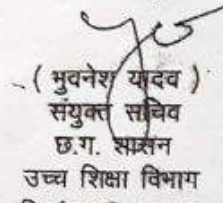 ( भुवनेश यादव )
संयुक्त सचिव
छ.ग. शासन
उच्च शिक्षा विभाग